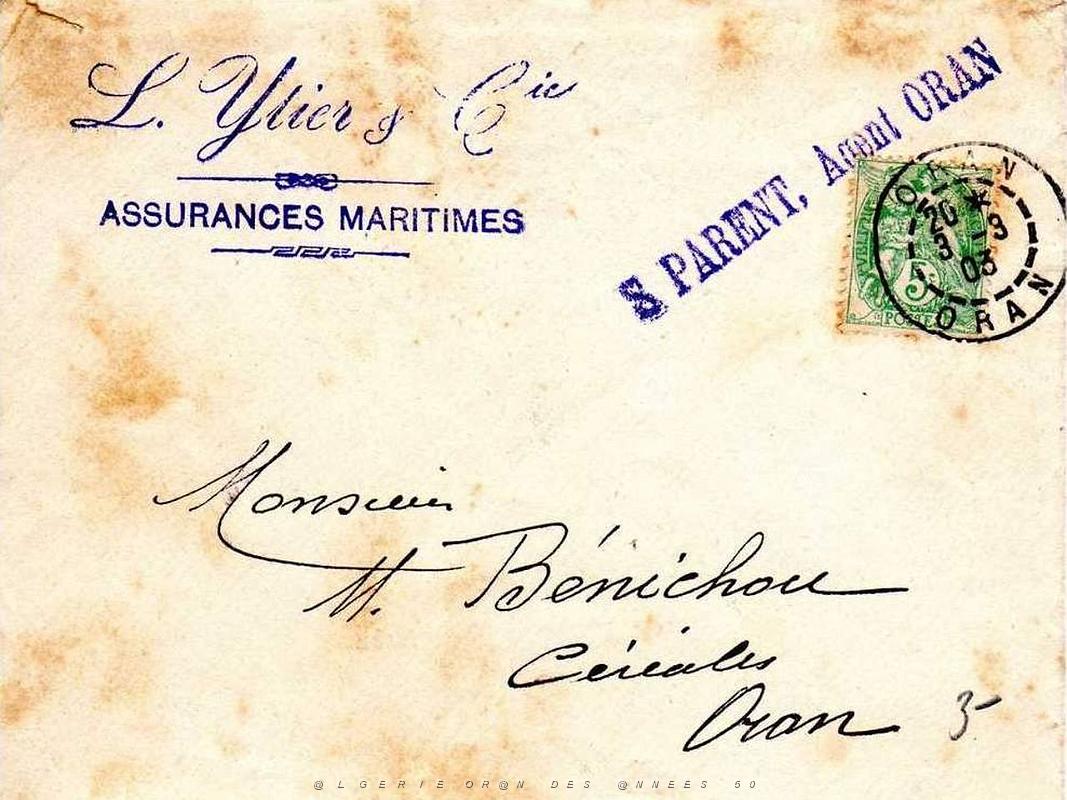 L. Ytier & Cie
ASSURANCES MARITIMES
S PARENT, Agent ORAN
ORAN
20 * 3
3 -03
ORAN
5c
POSTES
Monsieur
M. Bénichou
Céréales
Oran
3-
@LGERIE OR@N DES @NNEES 50